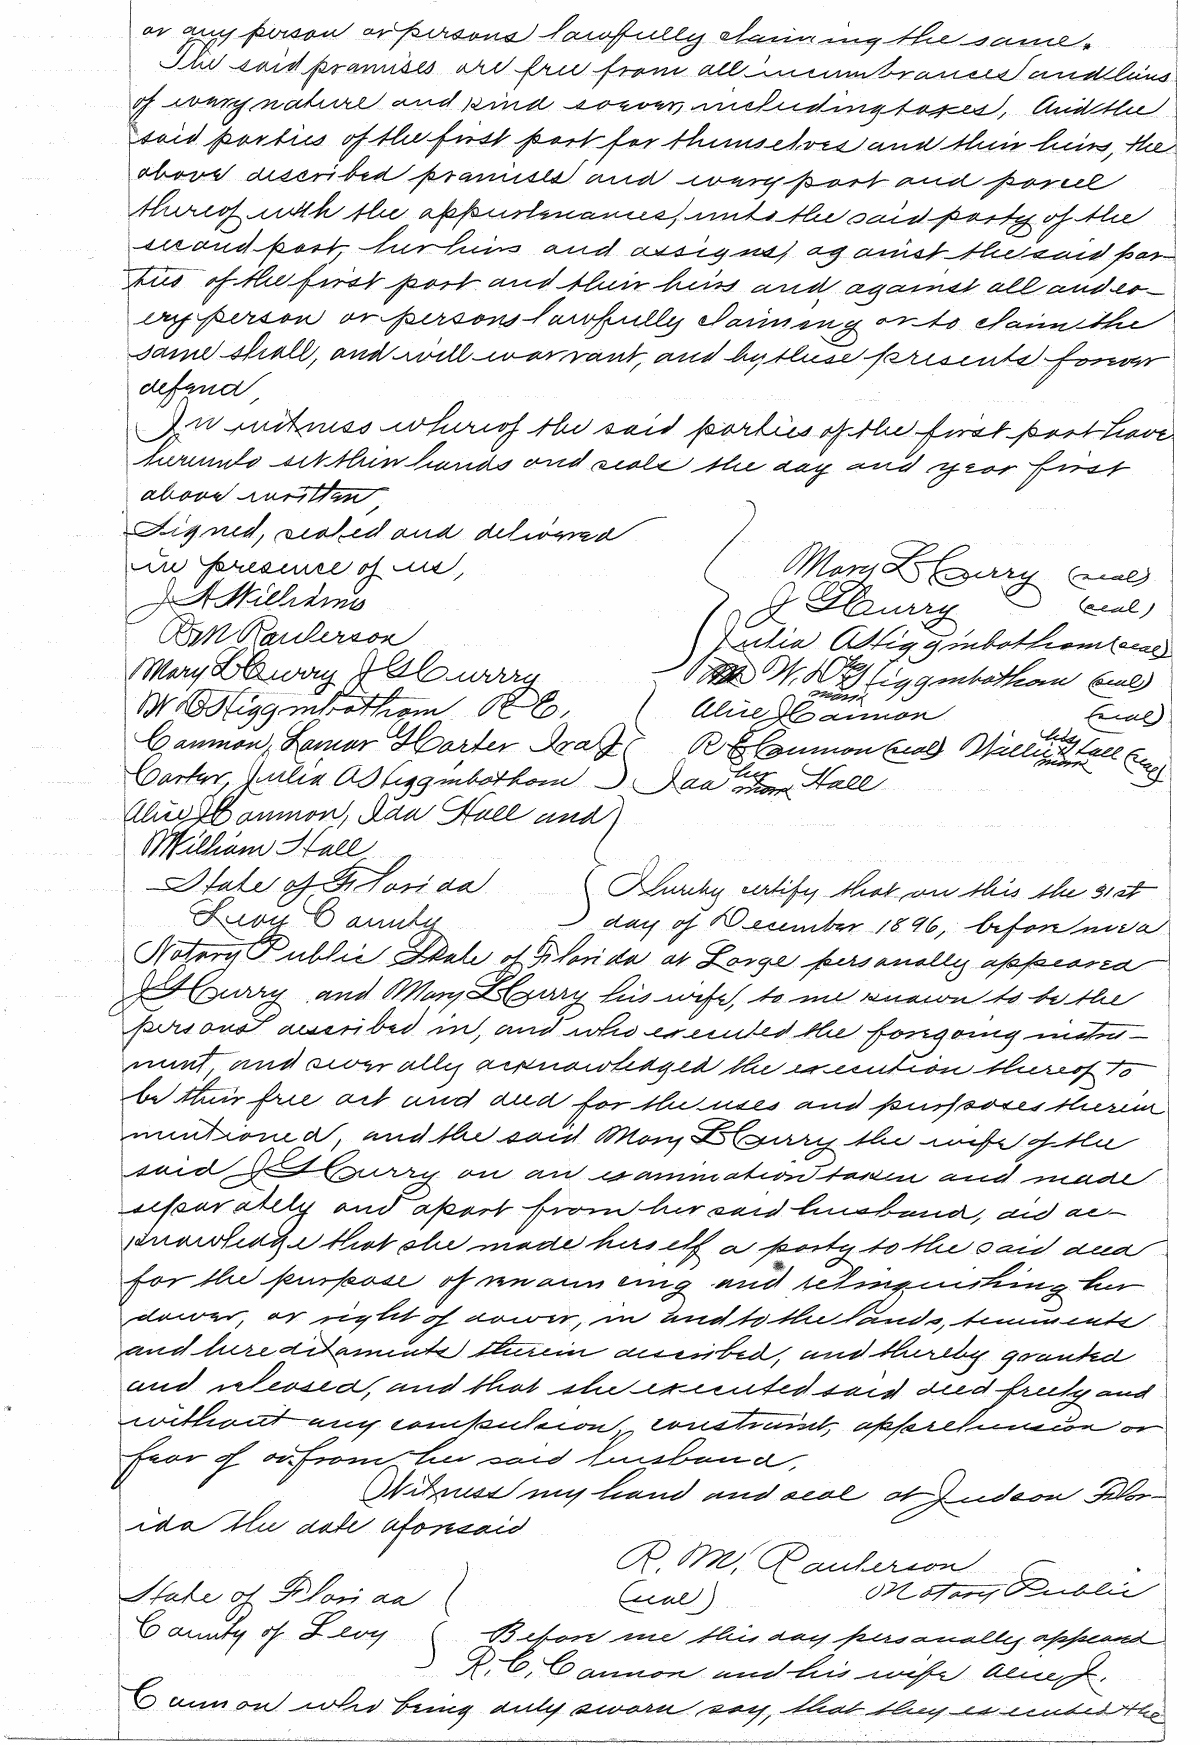 or any person or persons lawfully claiming the same.
The said premises are free from all incumbrances and liens
of every nature and kind soever, including taxes, And the
said parties of the first part for themselves and their heirs, the
above described premises and every part and parcel
thereof with the appurtenances, unto the said party of the
second part, her heirs and assigns, against the said par-
ties of the first part and their heirs and against all and ev-
ery person or persons lawfully claiming or to claim the
same shall, and will warrant, and by these presents forever
defend,
In witness whereof the said parties of the first part have
hereunto set their hands and seals the day and year first
above written,
Signed, sealed and delivered
in presence of us,
Mary L Curry (seal)
J A Williams
J H Curry (seal)
R M Raulerson
Julia A Higginbotham (seal)
Mary L Curry J H Curry
W. D. his mark Higginbotham (seal)
W D Higginbotham R C,
Alice J Cannon (seal)
Cannon, Lamar G Carter Ira J
R C Cannon (seal) Willie his mark Hall (seal)
Carter, Julia A Higginbotham
Ida her mark Hall
Alice J Cannon, Ida Hall and
William Hall
State of Florida
Levy County
I hereby certify that on this the 31st
day of December 1896, before me a
Notary Public State of Florida at Large personally appeared
J H Curry and Mary L Curry his wife, to me known to be the
persons described in, and who executed the foregoing instru-
ment, and severally acknowledged the execution thereof to
be their free act and deed for the uses and purposes therein
mentioned, and the said Mary L Curry the wife of the
said J H Curry on an examination taken and made
separately and apart from her said husband, did ac-
knowledge that she made herself a party to the said deed
for the purpose of renouncing and relinquishing her
dower, or right of dower, in and to the lands, tenements
and hereditaments therein described, and thereby granted
and released, and that she executed said deed freely and
without any compulsion, constraint, apprehension or
fear of or from her said husband.
Witness my hand and seal at Judson Flor-
ida the date aforesaid
R. M. Raulerson
(seal) Notary Public
State of Florida
County of Levy
Before me this day personally appeared
R. C. Cannon and his wife Alice J.
Cannon who being duly sworn say, that they executed the